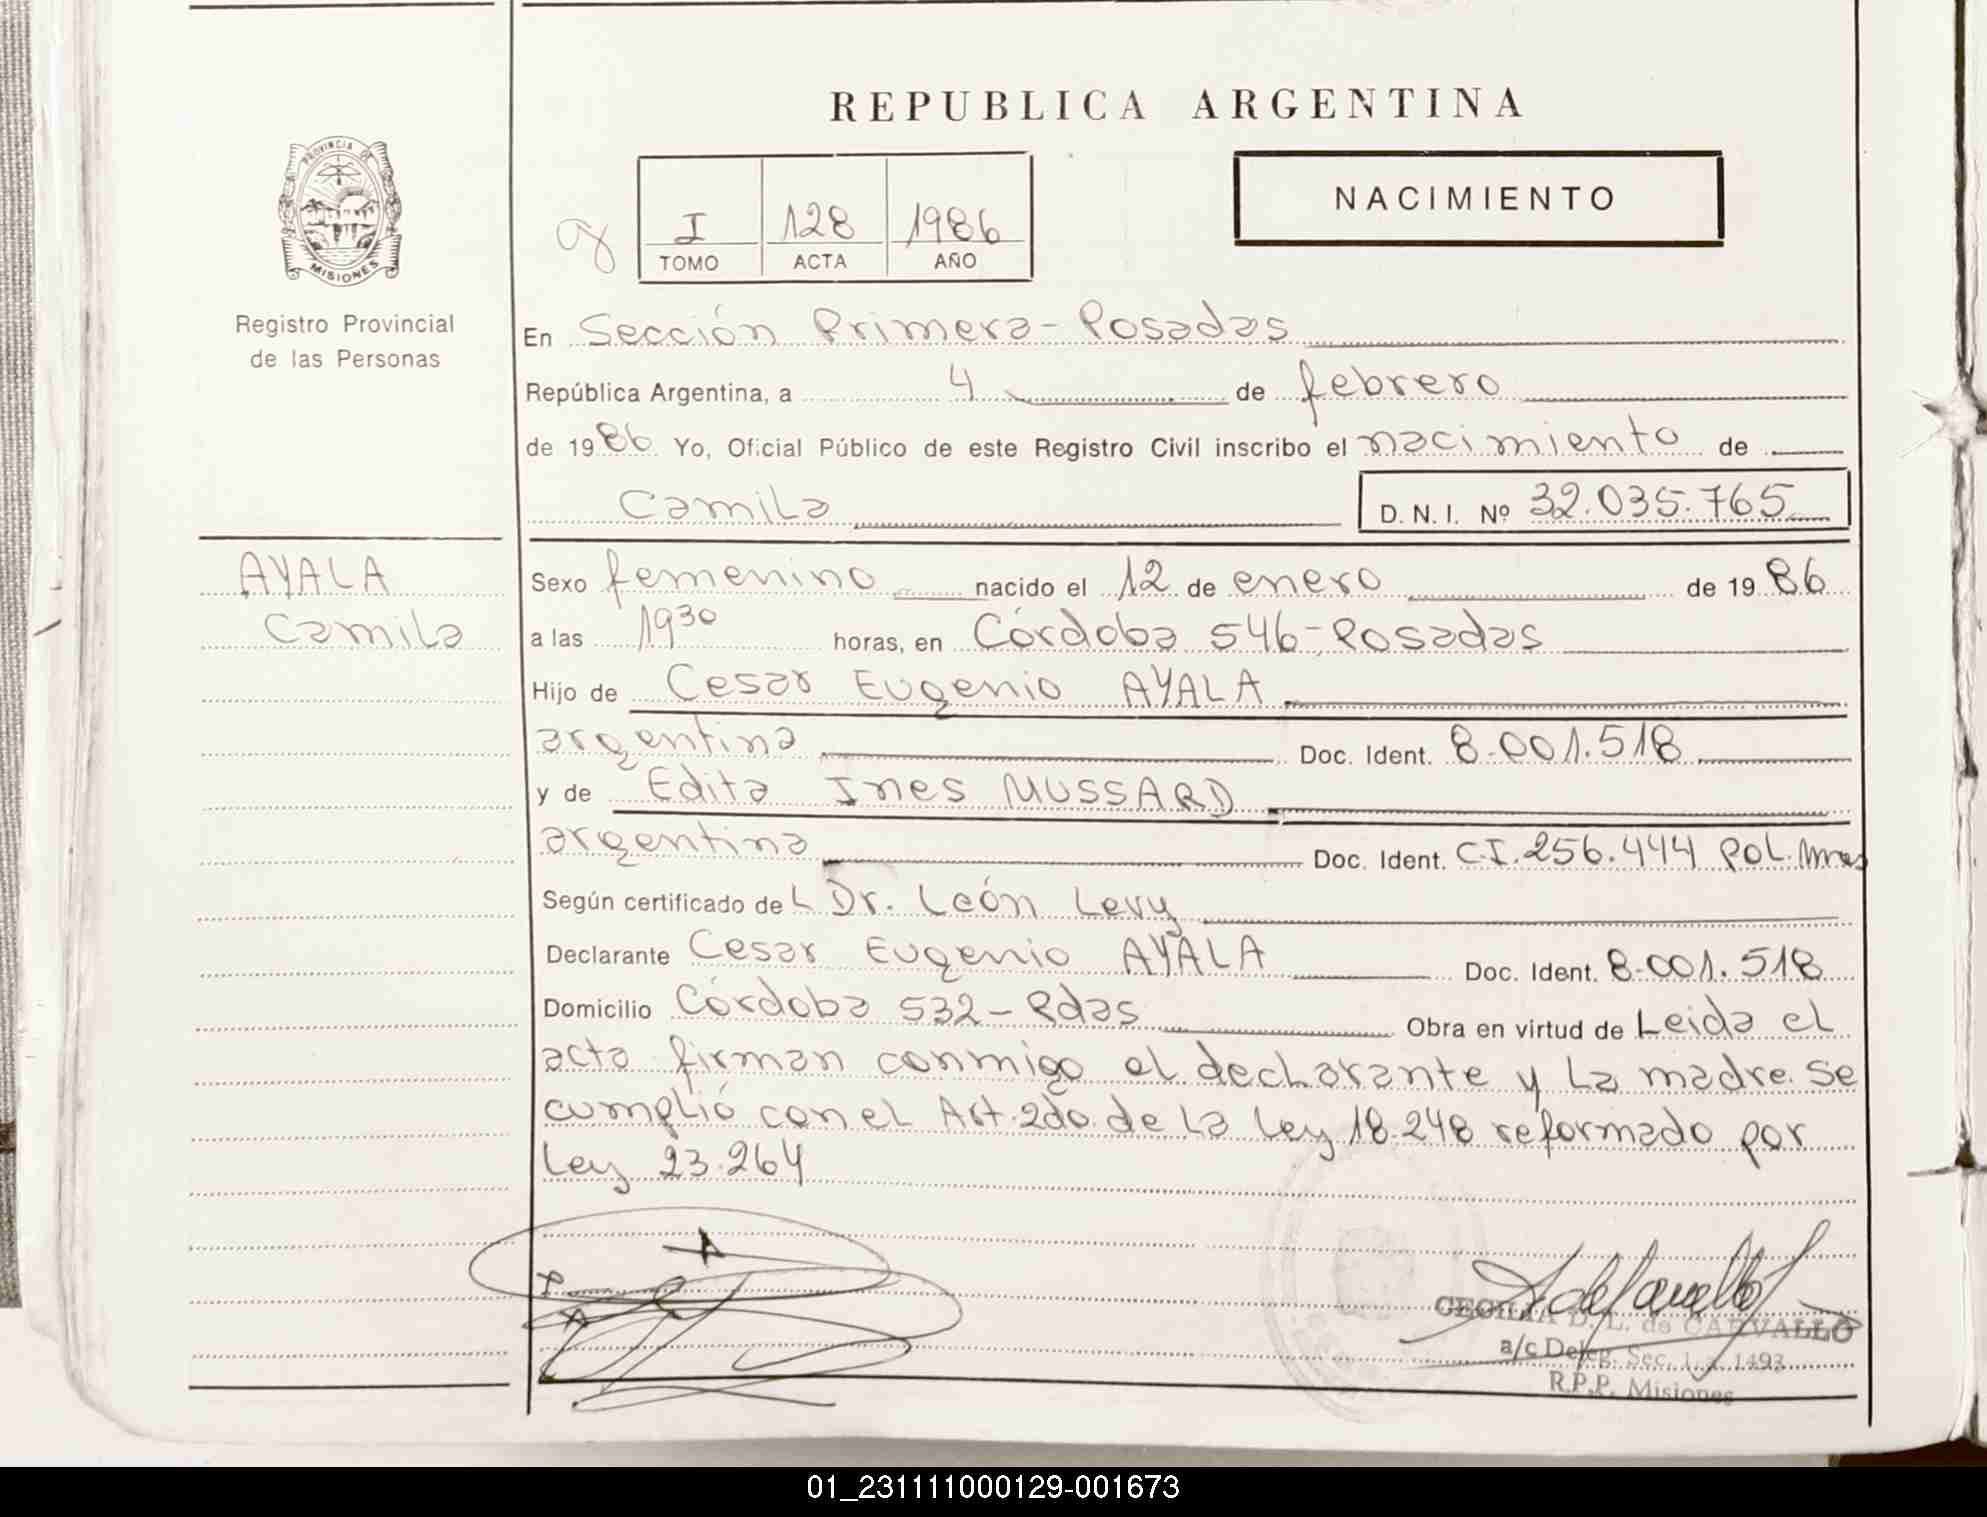 REPUBLICA ARGENTINA
PROVINCIA DE
MISIONES
Registro Provincial
de las Personas
I 128 1986
TOMO ACTA AÑO
NACIMIENTO
En Sección Primera - Posadas
República Argentina, a 4 de febrero
de 1986 Yo, Oficial Público de este Registro Civil inscribo el nacimiento de
Camila D. N. I. Nº 32.035.765
AYALA
Camila
Sexo femenino nacido el 12 de enero de 1986
a las 19³⁰ horas, en Córdoba 546-Posadas
Hijo de Cesar Eugenio AYALA
argentina Doc. Ident. 8.001.518
y de Edita Ines MUSSARD
argentina Doc. Ident. C.I. 256.444 Pol. Mnes
Según certificado del Dr. León Levy
Declarante Cesar Eugenio AYALA Doc. Ident. 8.001.518
Domicilio Córdoba 532 - Pdas Obra en virtud de Leida el
acta firman conmigo el declarante y la madre. Se
cumplió con el Art. 2do. de la ley 18.248 reformado por
ley 23.264
CECILIA D. L. de CARVALLO
a/c Deleg. Sec. 1 a. 1493
R.P.P. Misiones
01_231111000129-001673